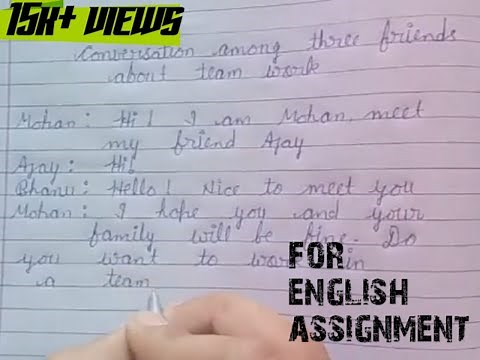 15K+ VIEWS
Conversation among three friends
about team work
Mohan: Hi! I am Mohan, meet
my friend Ajay
Ajay: Hi!
Bhanu: Hello! Nice to meet you
Mohan: I hope you and your
family will be fine. Do
you want to work in
a team
FOR
ENGLISH
ASSIGNMENT